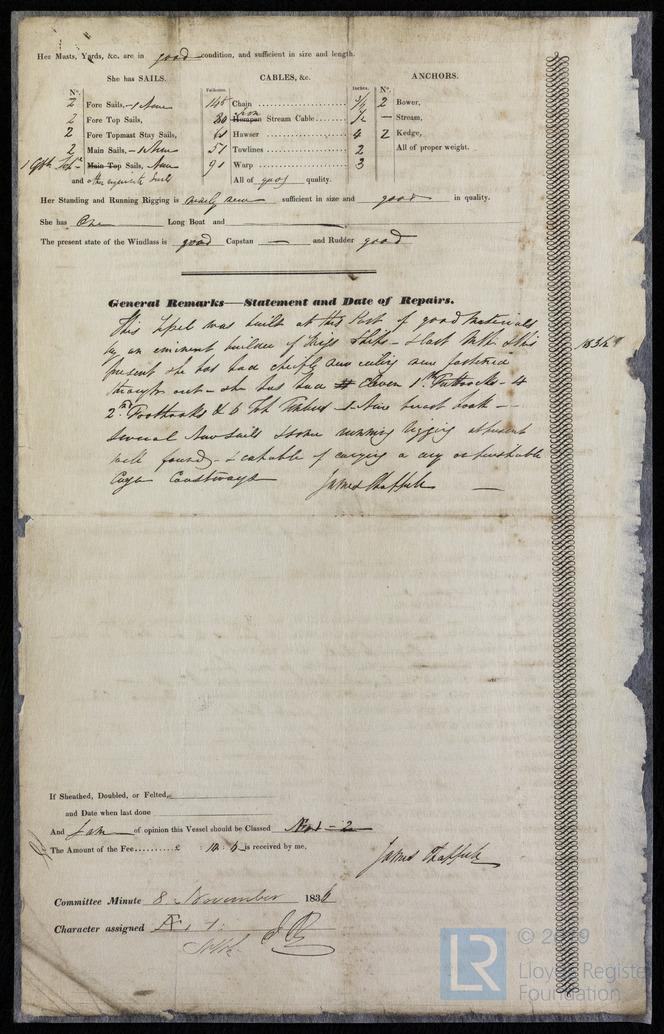 Her Masts, Yards, &c. are in good condition, and sufficient in size and length.
She has SAILS.
CABLES, &c.
ANCHORS.
Nº.
Fathoms.
Inches.
Nº.
2 Fore Sails, - 1 New
145 Chain
2 Bower,
2 Fore Top Sails,
80 Hempen Iron Stream Cable
— Stream,
2 Fore Topmast Stay Sails,
60 Hawser 4
2 Kedge,
2 Main Sails, - 1 New
Towlines 2
All of proper weight.
1 Main Top Sails, New
90 Warp 3
and other requisite Sails
All of good quality.
Her Standing and Running Rigging is nearly new sufficient in size and good in quality.
She has One Long Boat and
The present state of the Windlass is good Capstan — and Rudder good
General Remarks—Statement and Date of Repairs.
This was built at this Port of good materials
by an eminent builder of Ships - & this 1836
present she has had new and new fastened
through out - she has had Eleven 1st Futtocks - 4
2nd Foothooks & 6 Top Timbers - 1 New breast hook -
Several New Sails & some running rigging at present
well found - & capable of carrying a dry or perishable
Cargo Coastways James
If Sheathed, Doubled, or Felted,
and Date when last done
And I am of opinion this Vessel should be Classed
The Amount of the Fee £ : is received by me,
James
Committee Minute 8 November 1836
Character assigned Æ 1
© 2019
LR
Lloyd's Register
Foundation